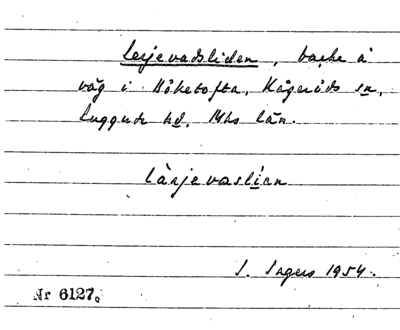 Lerjevadsliden, backe å
väg i Böketofta, Kågeröds sn,
Luggude hd, Mhs län.
lärjevaslian
S. Ingers 1954.
Nr 6127.